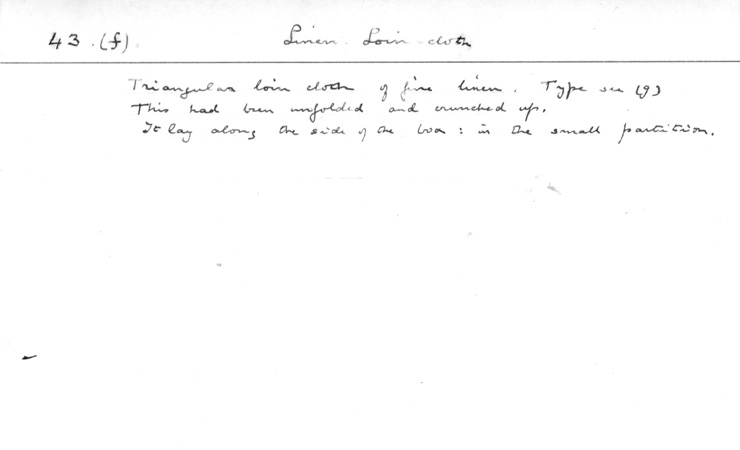 43.(f) Linen Loin-cloth
Triangular loin cloth of fine linen. Type see (g)
This had been unfolded and crunched up.
It lay along the side of the box : in the small partition.